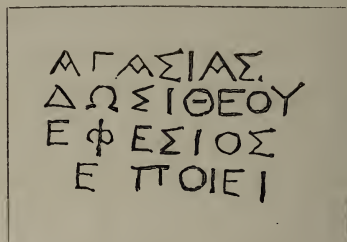 ΑΓΑΣΙΑΣ.
ΔΩΣΙΘΕΟΥ
ΕΦΕΣΙΟΣ
Ε ΠΟΙΕΙ